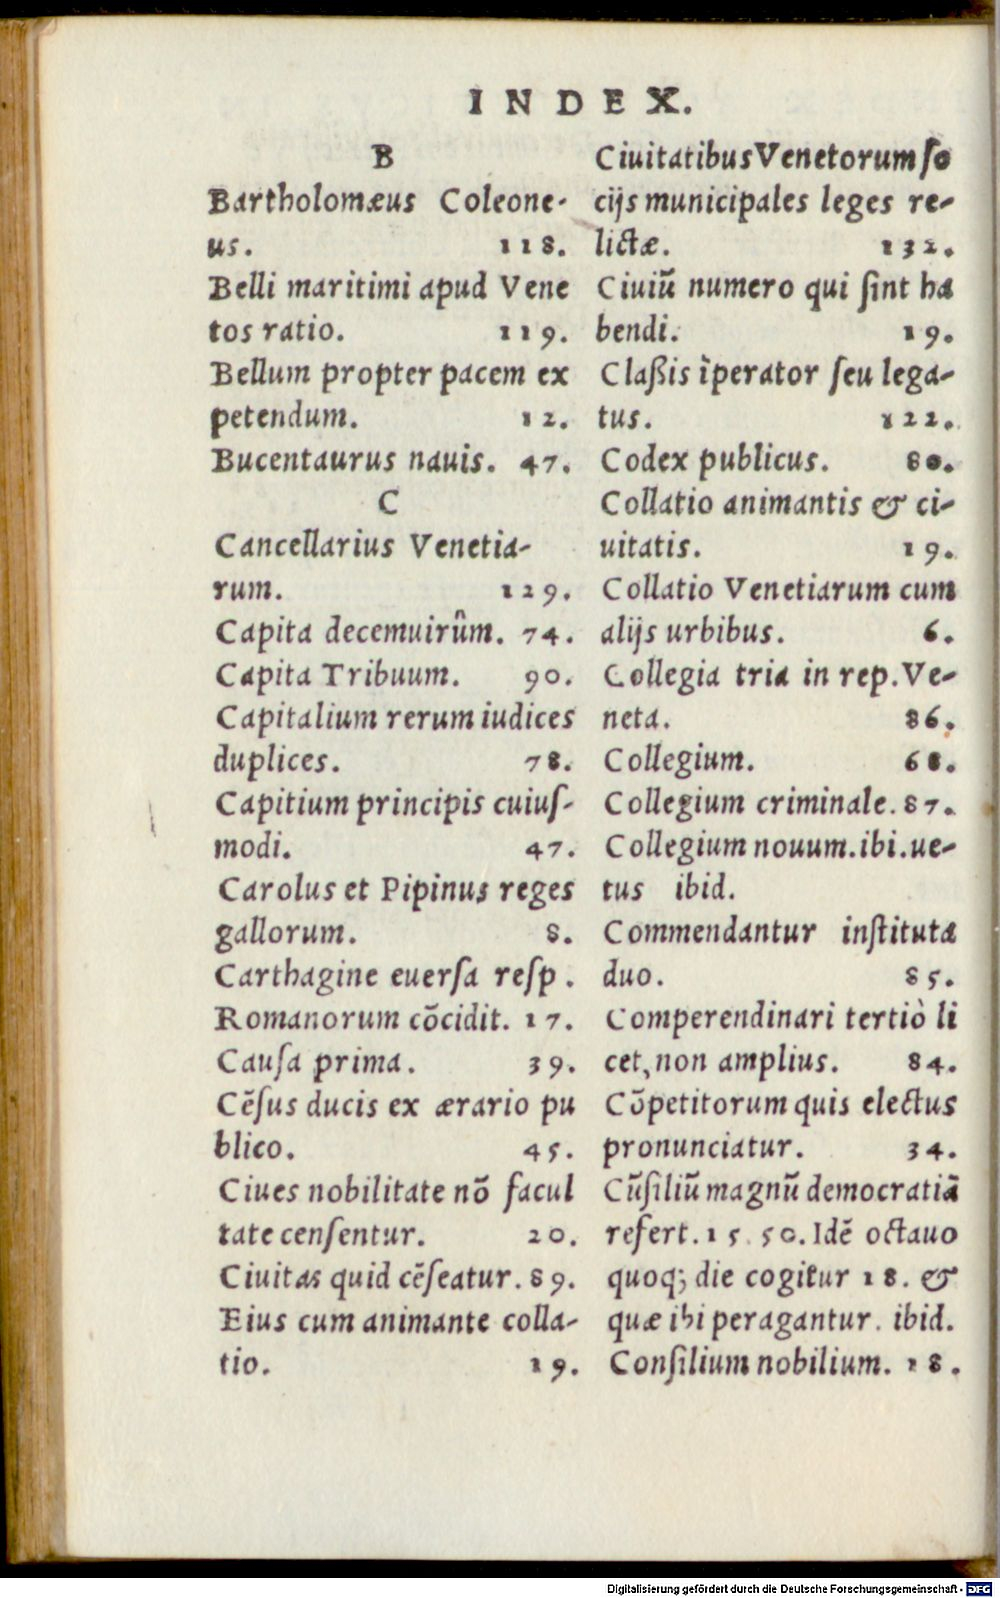 INDEX.
B
Bartholomæus Coleone-
us. 118.
Belli maritimi apud Vene
tos ratio. 119.
Bellum propter pacem ex
petendum. 12.
Bucentaurus nauis. 47.
C
Cancellarius Venetia-
rum. 129.
Capita decemuirûm. 74.
Capita Tribuum. 90.
Capitalium rerum iudices
duplices. 78.
Capitium principis cuiuſ-
modi. 47.
Carolus et Pipinus reges
gallorum. 8.
Carthagine euerſa reſp.
Romanorum cōcidit. 17.
Cauſa prima. 39.
Cēſus ducis ex ærario pu
blico. 45.
Ciues nobilitate nō facul
tate cenſentur. 20.
Ciuitas quid cēſeatur. 89.
Eius cum animante colla-
tio. 19.
Ciuitatibus Venetorum ſo
cijs municipales leges re-
lictæ. 132.
Ciuiū numero qui ſint ha
bendi. 19.
Claßis īperator ſeu lega-
tus. 122.
Codex publicus. 80.
Collatio animantis & ci-
uitatis. 19.
Collatio Venetiarum cum
alijs urbibus. 6.
Collegia tria in rep. Ve-
neta. 86.
Collegium. 68.
Collegium criminale. 87.
Collegium nouum. ibi. ue-
tus ibid.
Commendantur inſtituta
duo. 85.
Comperendinari tertiò li
cet, non amplius. 84.
Cōpetitorum quis electus
pronunciatur. 34.
Cūſiliū magnū democratiā
refert. 15. 50. Idē octauo
quoq; die cogitur 18. &
quæ ibi peragantur. ibid.
Conſilium nobilium. 18.
Digitalisierung gefördert durch die Deutsche Forschungsgemeinschaft - DFG